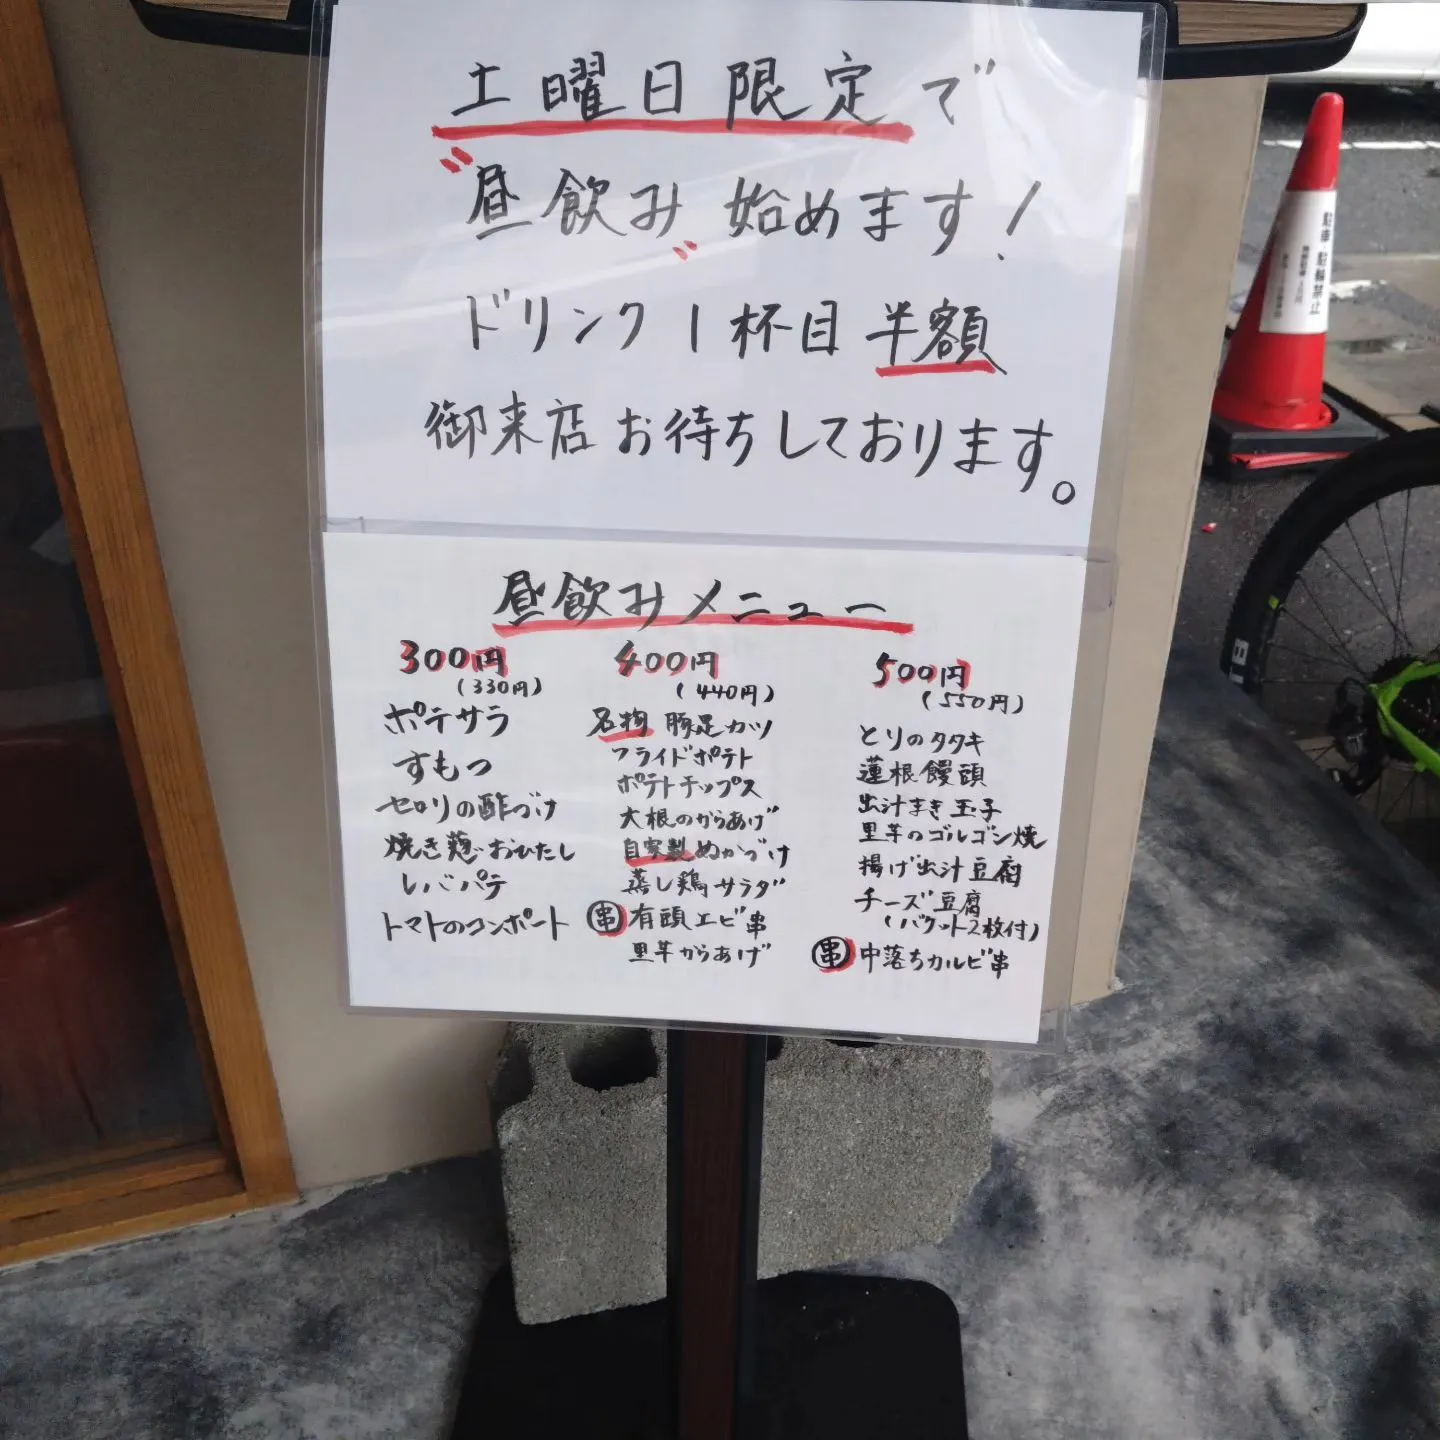 土曜日限定で
"昼飲み"始めます!
ドリンク1杯目半額
御来店お待ちしております。
昼飲みメニュー
300円
(330円)
ポテサラ
すもつ
セロリの酢づけ
焼き麩おひたし
レバパテ
トマトのコンポート
400円
(440円)
名物 豚足カツ
フライドポテト
ポテトチップス
大根のからあげ
自家製ぬかづけ
蒸し鶏サラダ
串 有頭エビ串
里芋からあげ
500円
(550円)
とりのタタキ
蓮根饅頭
出汁まき玉子
里芋のゴルゴン焼
揚げ出汁豆腐
チーズ豆腐
(バケット2枚付)
串 中落ちカルビ串
駐車・駐輪禁止